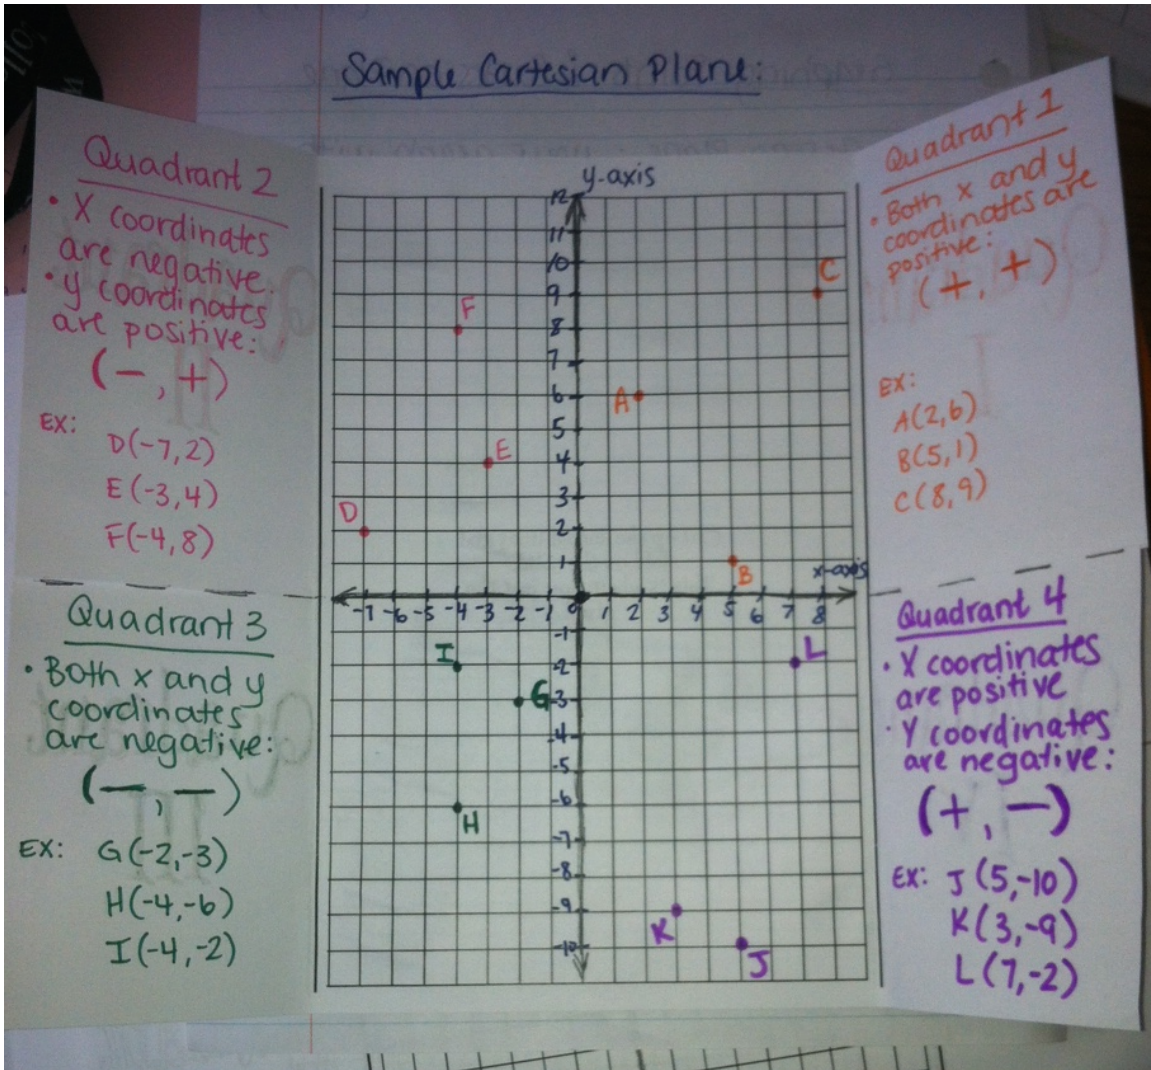 Sample Cartesian Plane:
Quadrant 2
• X coordinates
are negative.
• Y coordinates
are positive:
(−, +)
EX:
D(-7,2)
E(-3,4)
F(-4,8)
Quadrant 3
• Both x and y
coordinates
are negative:
(−, −)
EX: G(-2,-3)
H(-4,-6)
I(-4,-2)
y-axis
12
11
10
9
8
7
6
5
4
3
2
1
x-axis
-7 -6 -5 -4 -3 -2 -1 0 1 2 3 4 5 6 7 8
-1
-2
-3
-4
-5
-6
-7
-8
-9
-10
C
F
A
E
D
B
I
L
G
H
K
J
Quadrant 1
• Both x and y
coordinates are
positive:
(+, +)
EX:
A(2,6)
B(5,1)
C(8,9)
Quadrant 4
• X coordinates
are positive
• Y coordinates
are negative:
(+, −)
EX: J(5,-10)
K(3,-9)
L(7,-2)